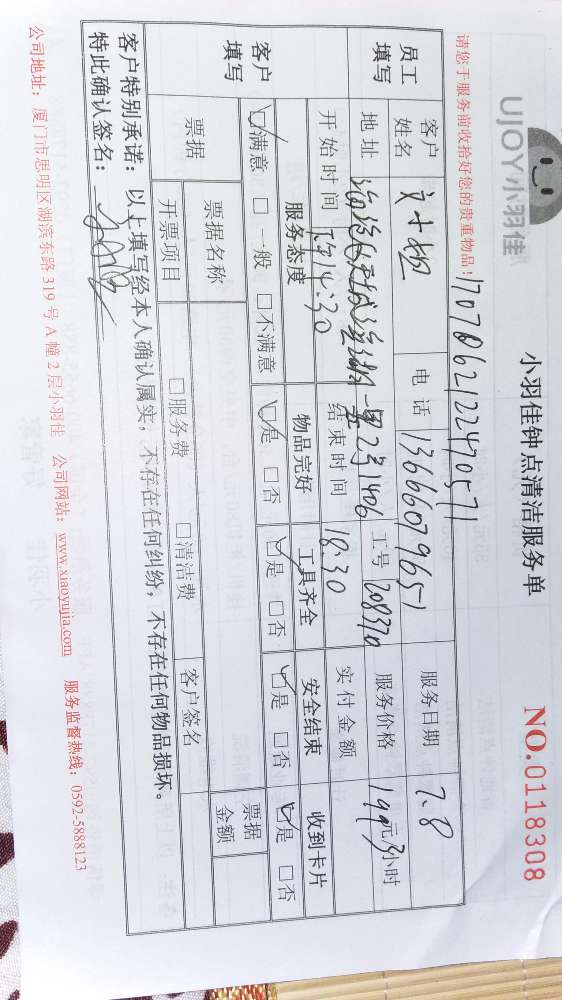 UJOY小羽佳
小羽佳钟点清洁服务单
NO.0118308
请您于服务前收拾好您的贵重物品！
员工填写
客户姓名
电话 13666079651
服务日期 7.8
地址
2号1406
工号 208370
服务价格 149元3小时
开始时间 下午14:30
结束时间 18:30
实付金额
客户填写
服务态度 物品完好 工具齐全 安全结束 收到卡片
☑满意 □一般 □不满意 ☑是 □否 ☑是 □否 ☑是 □否 ☑是 □否
票据
票据名称
票据金额
开票项目 □服务费 □清洁费
客户签名
客户特别承诺：以上填写经本人确认属实，不存在任何纠纷，不存在任何物品损坏。
特此确认签名：
公司地址：厦门市思明区湖滨东路319号A幢2层小羽佳 公司网站：www.xiaoyujia.com 服务监督热线：0592-5888123